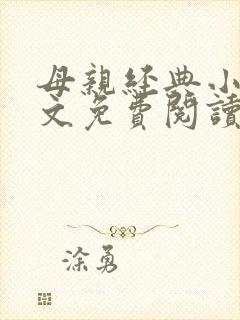 母親經典小
文免費閱讀
涂勇